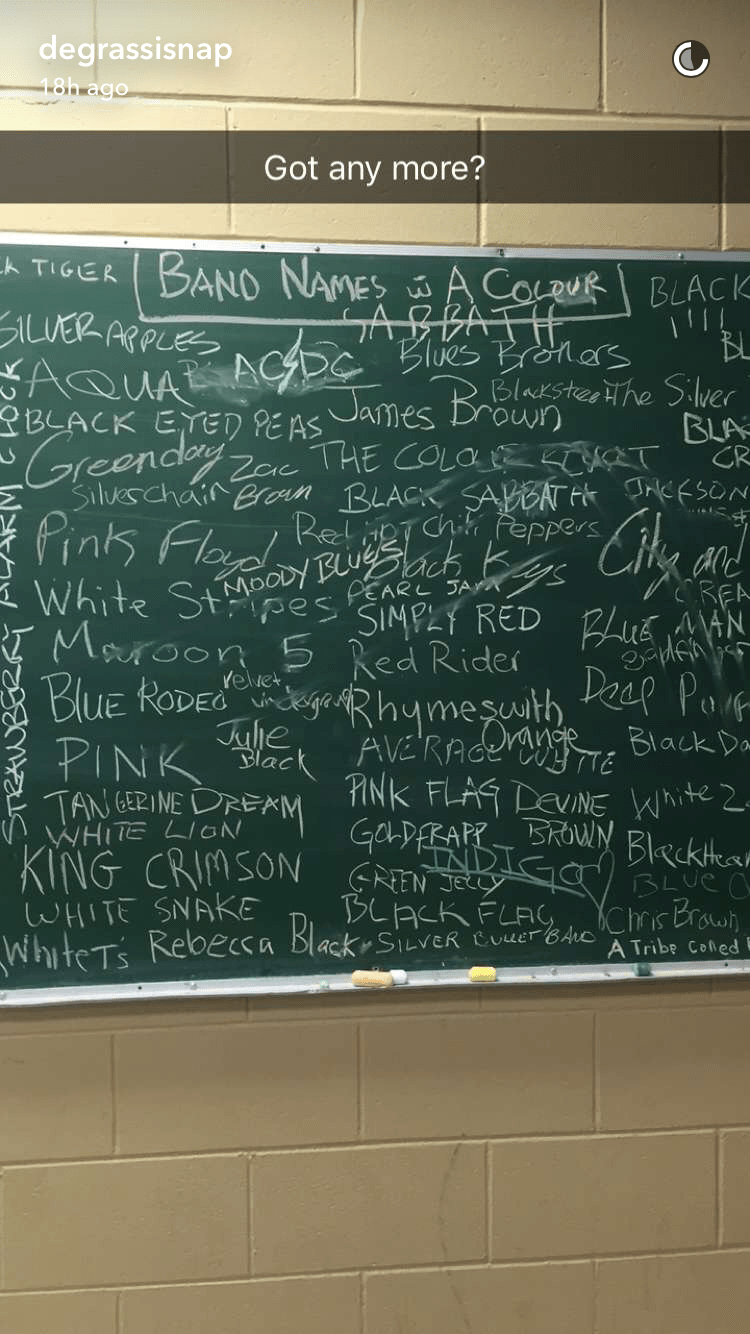 degrassisnap
18h ago
Got any more?
TIGER
BAND NAMES A COLOUR
BLACK
SABBATH
SILVER APPLES
AC/DC
Blues Brothers
BL
AQUA
The Silver
BLACK EYED PEAS
James Brown
BLA
Greenday
Zac
Brown
THE COLO
CR
Silverchair
BLACK SABBATH
JACKSON
Pink Floyd
Red Hot Chili Peppers
City and
MOODY BLUES
Black Keys
White Stripes
PEARL JAM
SIMPLY RED
BLUE MAN
Maroon 5
Red Rider
goldfinger
BLUE RODEO
velvet
underground
Rhymeswith
Orange
Deep Purp
Julie
Black
PINK
AVERAGE WHITE
Black Da
TANGERINE DREAM
PINK FLAG
DEVINE
BROWN
White Z
WHITE LION
GOLDFRAPP
INDIGO
BlackHear
KING CRIMSON
GREEN JELLY
BLUE O
WHITE SNAKE
BLACK FLAG
Chris Brown
WhiteT's
Rebecca Black
SILVER BULLET BAND
A Tribe Called
STRAWBERRY ALARM CLOCK